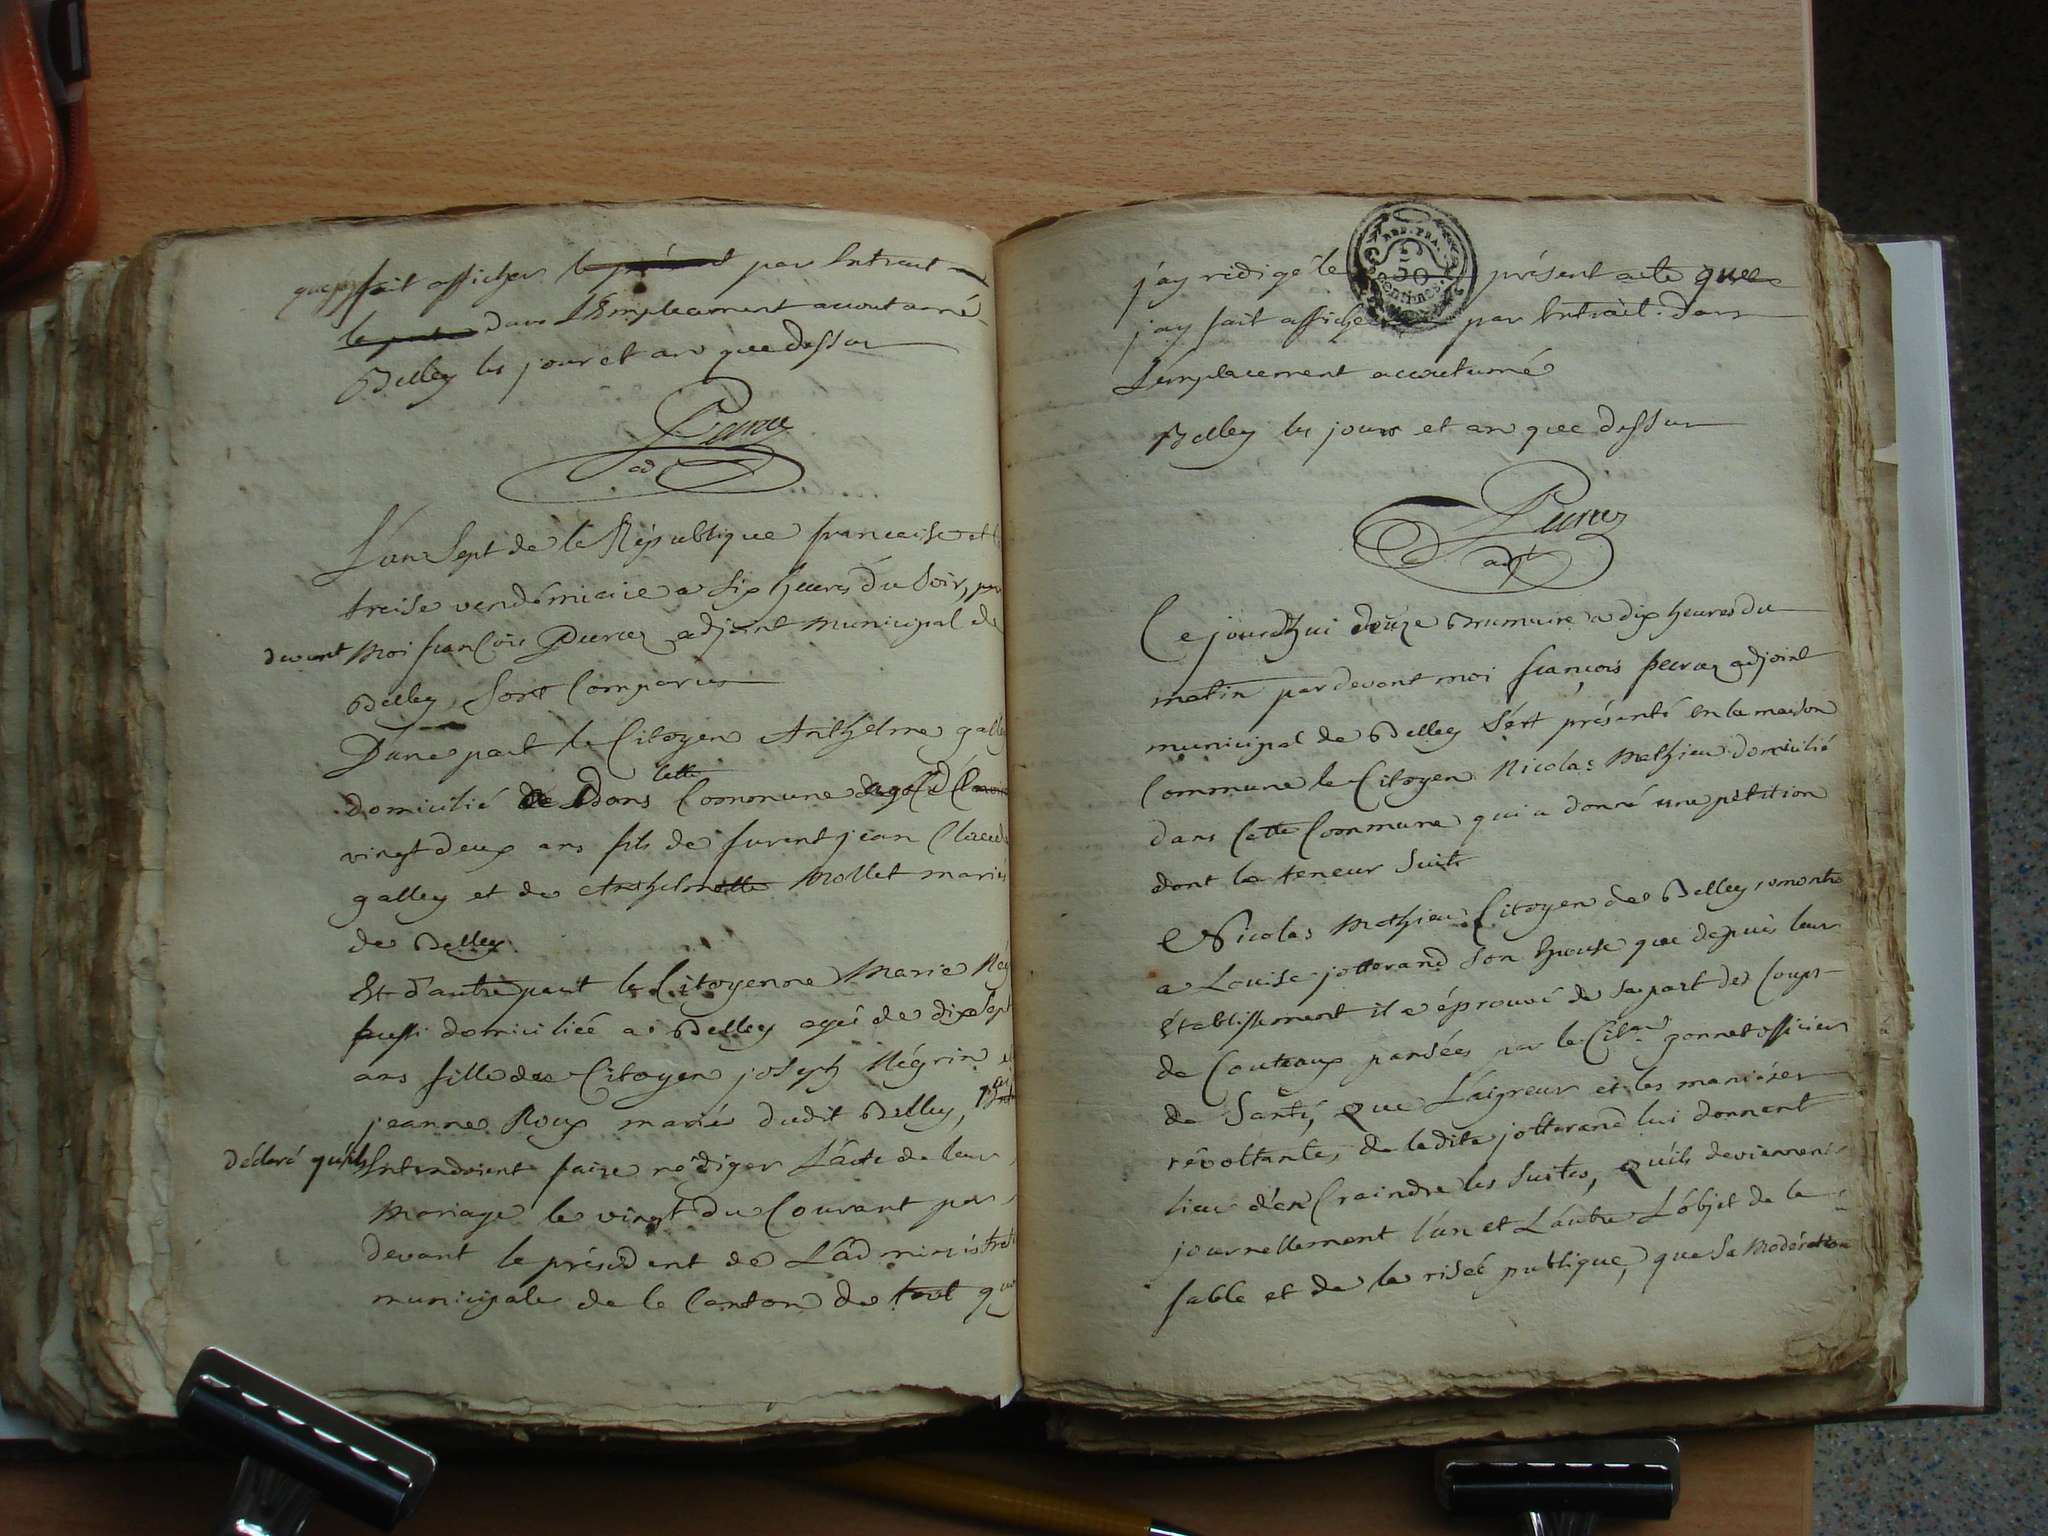 que j'ay fait afficher le présent par Extrait
le présent dans L'Emplacement accoutumé
Belley les jour et an que dessus
Peuruz
ad
L'an Sept de la République francaise et le
treise vendémiaire a six heures du soir, par
devant Moi francois Peuruz adjoint Municipal de
Belley, sont Comparus
Dune part le Citoyen Anthelme galley
domicilié dans cette Commune agé d'Environ
vingt deux ans fils de furent jean Claude
galley et de Anthelmette Mollet mariés
de Belley.
Et d'autre part la Citoyenne Marie
aussi domiciliée a Belley agée de dix Sept
ans fille de Citoyen joseph Négrin et
jeanne Roux mariés dudit Belley,
déclaré qu'ils Entendoient faire rédiger L'acte de leur
Mariage le vingt du Courant par
devant le président de L'administration
municipale de le Canton de tout que
j'ay rédigé le présent acte que
REP. FRA.
50
Centimes
j'ay fait afficher par Extrait dans
L'emplacement accoutumé
Belley les jour et an que dessus
Peuruz
adjt
Ce jourdhui douze Brumaire a dix heures du
matin par devant moi françois peuruz adjoint
municipal de Belley s'est présenté en la maison
Commune le Citoyen Nicolas Mathieu domicilié
dans Cette Commune qui a donné une pétition
dont la teneur suit
Nicolas Mathieu Citoyen de Belley remontre
a Louise jotterand son Epouse que depuis leur
Etablissement il a éprouvé de sa part des Coups
de Couteaux pansées par le Cit.en gonnet officier
de Santé, que L'aigreur et les maniéres
révoltantes de ladite jotterand lui donnent
lieu d'en Craindre les suites, qu'ils deviennent
journellement l'un et L'autre L'objet de la
fable et de la riseé publique, que sa Modération